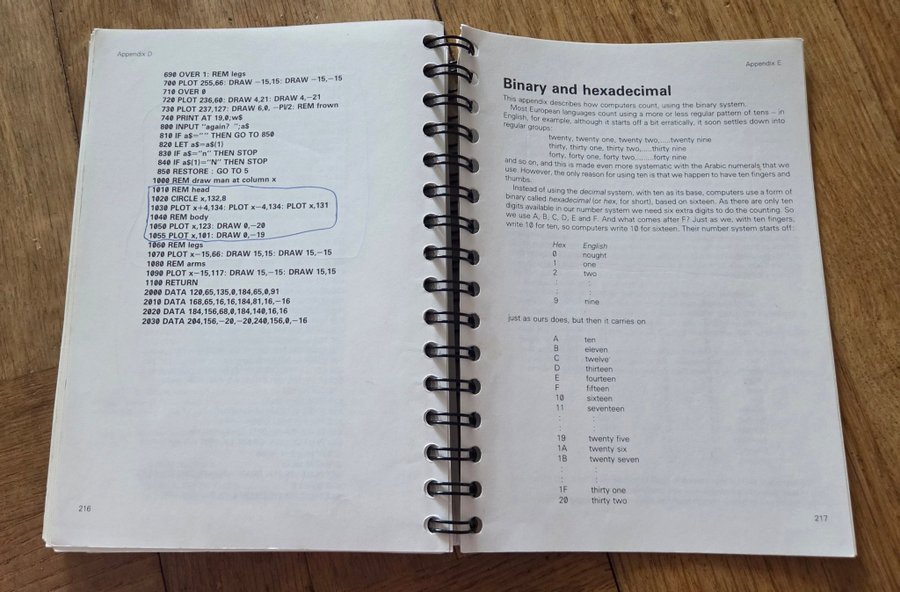 Appendix D
690 OVER 1: REM legs
700 PLOT 255,66: DRAW −15,15: DRAW −15,−15
710 OVER 0
720 PLOT 236,60: DRAW 4,21: DRAW 4,−21
730 PLOT 237,127: DRAW 6,0, −PI/2: REM frown
740 PRINT AT 19,0;w$
800 INPUT "again? ";a$
810 IF a$="" THEN GO TO 850
820 LET a$=a$(1)
830 IF a$="n" THEN STOP
840 IF a$(1)="N" THEN STOP
850 RESTORE : GO TO 5
1000 REM draw man at column x
1010 REM head
1020 CIRCLE x,132,8
1030 PLOT x+4,134: PLOT x−4,134: PLOT x,131
1040 REM body
1050 PLOT x,123: DRAW 0,−20
1055 PLOT x,101: DRAW 0,−19
1060 REM legs
1070 PLOT x−15,66: DRAW 15,15: DRAW 15,−15
1080 REM arms
1090 PLOT x−15,117: DRAW 15,−15: DRAW 15,15
1100 RETURN
2000 DATA 120,65,135,0,184,65,0,91
2010 DATA 168,65,16,16,184,81,16,−16
2020 DATA 184,156,68,0,184,140,16,16
2030 DATA 204,156,−20,−20,240,156,0,−16
216
Appendix E
Binary and hexadecimal
This appendix describes how computers count, using the binary system.
Most European languages count using a more or less regular pattern of tens – in
English, for example, although it starts off a bit erratically, it soon settles down into
regular groups:
twenty, twenty one, twenty two,.....twenty nine
thirty, thirty one, thirty two,.....thirty nine
forty, forty one, forty two,.......forty nine
and so on, and this is made even more systematic with the Arabic numerals that we
use. However, the only reason for using ten is that we happen to have ten fingers and
thumbs.
Instead of using the decimal system, with ten as its base, computers use a form of
binary called hexadecimal (or hex, for short), based on sixteen. As there are only ten
digits available in our number system we need six extra digits to do the counting. So
we use A, B, C, D, E and F. And what comes after F? Just as we, with ten fingers,
write 10 for ten, so computers write 10 for sixteen. Their number system starts off:
Hex English
0 nought
1 one
2 two
: :
: :
9 nine
just as ours does, but then it carries on
A ten
B eleven
C twelve
D thirteen
E fourteen
F fifteen
10 sixteen
11 seventeen
: :
: :
19 twenty five
1A twenty six
1B twenty seven
: :
: :
1F thirty one
20 thirty two
217